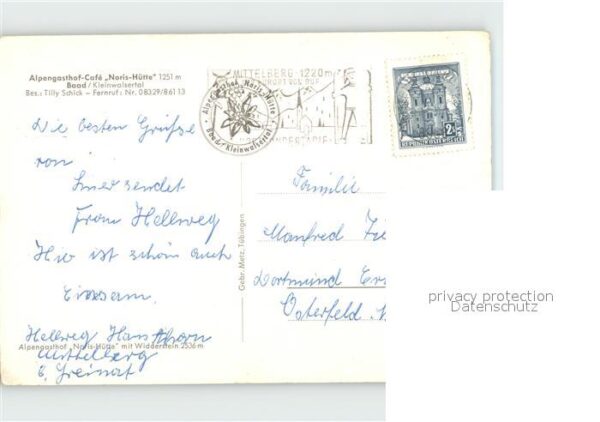 Alpengasthof-Café „Noris-Hütte" 1251 m
Baad / Kleinwalsertal
Bes.: Tilly Schick – Fernruf: Nr. 08329/86113
MITTELBERG 1220m
Alpengasthof Noris-Hütte
Baad / Kleinwalsertal
2.50
REPUBLIK ÖSTERREICH
Die besten Grüsse
von
Frau Hellweg
Hier ist schön auch
Einsam.
Hellweg Hans
Mittelberg
Familie
Manfred
Dortmund
Osterfeld
Gebr. Metz, Tübingen
Alpengasthof „Noris-Hütte" mit Widderstein 2536 m
privacy protection
Datenschutz